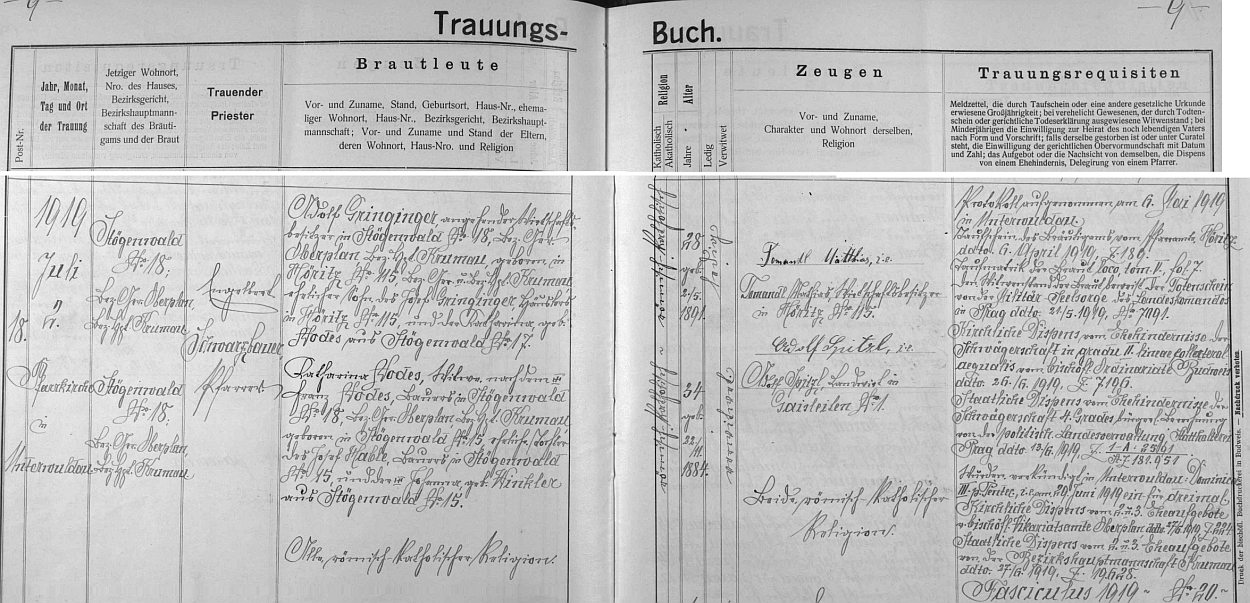 — 9 —
Trauungs-
Post-Nr.
Jahr, Monat,
Tag und Ort
der Trauung
Jetziger Wohnort,
Nro. des Hauses,
Bezirksgericht,
Bezirkshauptmann-
schaft des Bräuti-
gams und der Braut
Trauender
Priester
Brautleute
Vor- und Zuname, Stand, Geburtsort, Haus-Nr., ehema-
liger Wohnort, Haus-Nr., Bezirksgericht, Bezirkshaupt-
mannschaft; Vor- und Zuname und Stand der Eltern,
deren Wohnort, Haus-Nro. und Religion
18.
1919
Juli
2.
Pfarrkirche
in
Unterwuldau
Stögenwald
No 18,
Bez. Ger. Oberplan,
Bez. Hpt. Krumau.
Stögenwald
No 18.
Bez. Ger. Oberplan,
Bez. Hpt. Krumau.
Engelbert
Schwarzbauer
Pfarrer
Adolf Gringinger, angehender Wirtschafts-
besitzer in Stögenwald No 18, Bez. Ger.
Oberplan Bez. Hpt. Krumau, geboren in
Höritz No 115, Bez. Ger. u. Bez. Hpt. Krumau
ehelicher Sohn des Josef Gringinger, Häuslers
in Höritz No 115, und der Katharina, geb.
Hodes aus Stögenwald No 17.
Katharina Hodes, Witwe nach dem
Franz Hodes, Bauers in Stögenwald
No 18, Bez. Ger. Oberplan Bez. Hpt. Krumau,
geboren in Stögenwald No 15, eheliche Tochter
des Josef Hable, Bauers in Stögenwald
No 15, und der Johanna, geb. Winkler
aus Stögenwald No 15.
Alle römisch-katholischer Religion.
— 9 —
Buch.
Religion
Katholisch
Akatholisch
Alter
Jahre
Ledig
Verwitwet
Zeugen
Vor- und Zuname,
Charakter und Wohnort derselben,
Religion
Trauungsrequisiten
Meldzettel, die durch Taufschein oder eine andere gesetzliche Urkunde
erwiesene Großjährigkeit; bei verehelicht Gewesenen, der durch Todten-
schein oder gerichtliche Todeserklärung ausgewiesene Witwenstand; bei
Minderjährigen die Einwilligung zur Heirat des noch lebendigen Vaters
nach Form und Vorschrift; falls derselbe gestorben ist oder unter Curatel
steht, die Einwilligung der gerichtlichen Obervormundschaft mit Datum
und Zahl; das Aufgebot oder die Nachsicht von demselben, die Dispens
von einem Ehehindernis, Delegirung von einem Pfarrer.
28
geb.
1891.
ledig
34
geb.
22/
11.
1884.
verwitwet
Tomandl Matthias,
Tomandl Mathias Wirtschaftsbesitzer
in Höritz No 115.
Adolf Spitzl,
Adolf Spitzl, Landwirt in
Gaisleiten, No 1.
Beide römisch-katholischer
Religion.
Protokoll aufgenommen am 6. Juni 1919
in Unterwuldau.
Taufschein des Bräutigams vom Pfarramte Höritz
ddto. 6. April 1919, Z. 189.
Taufmatrik der Braut loco, tom. V., fol. 7.
Den Witwenstand der Braut beweist der Totenschein
von der Militär Seelsorge des Landeskomandos
in Prag ddto. 21/5. 1919, No 7091.
Kirchliche Dispens vom Ehehindernisse der
Schwägerschaft in gradu II. lineae collateral.
aequalis vom bischöfl. Ordinariate Budweis
ddto. 26./6. 1919, Z. 7196.
Staatliche Dispens vom Ehehindernisse der
Schwägerschaft 4. Grades bürgerl. Berechnung
von der politisch. Landesverwaltung Statthalterei
Prag ddto 13/6. 1919,
Wurden verkündigt in Unterwuldau: Dominica
III. p. Pentec., i. e. am 29. Juni 1919 ein für dreimal.
Kirchliche Dispens vom 2. u. 3. Eheaufgebote
v. bischöfl. Vikariatsamte Oberplan ddto.
Staatliche Dispens vom 2. u. 3. Eheaufgebote
von der Bezirkshauptmannschaft Krumau
ddto. 27/6. 1919, Z. 19628.
Fasciculus 1919 - No 20. -
Druck der bischöfl. Buchdruckerei in Budweis. — Nachdruck verboten.